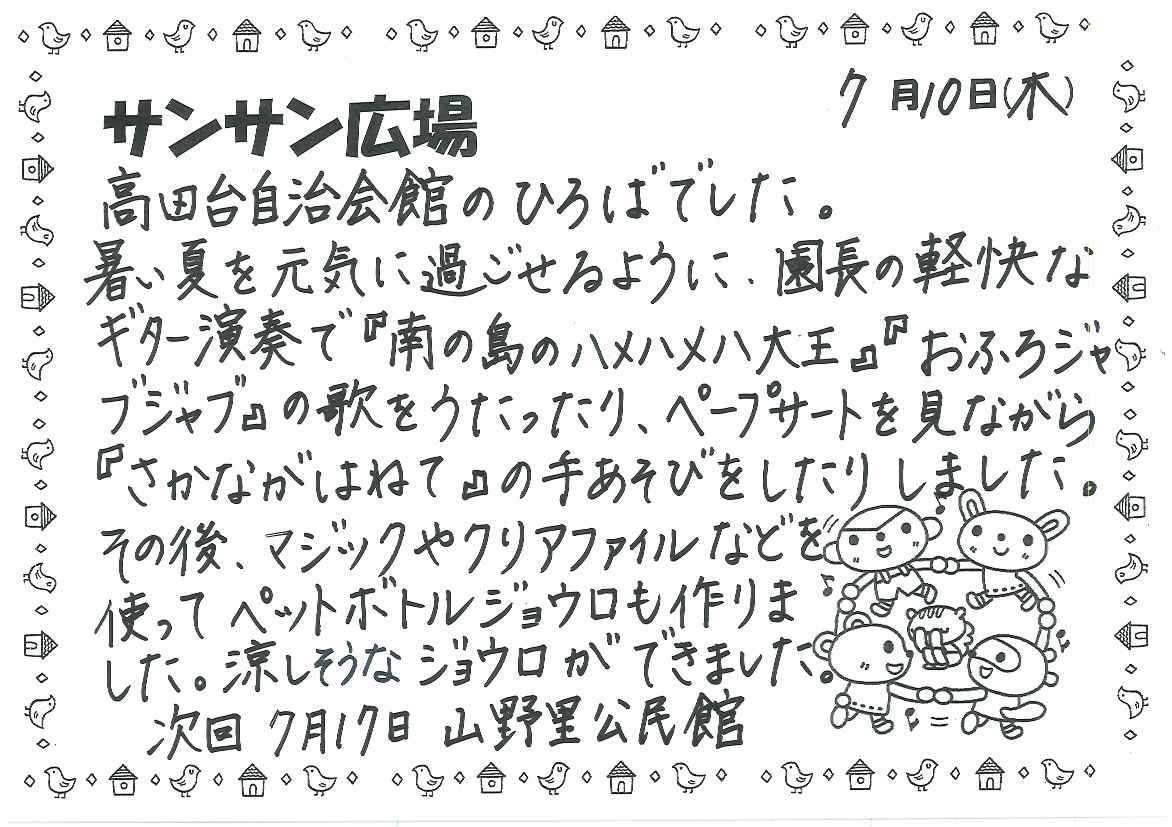 7月10日(木)
サンサン広場
高田台自治会館のひろばでした。
暑い夏を元気に過ごせるように、園長の軽快な
ギター演奏で『南の島のハメハメハ大王』『おふろジャ
ブジャブ』の歌をうたったり、ペープサートを見ながら
『さかながはねて』の手あそびをしたりしました。
その後、マジックやクリアファイルなどを
使ってペットボトルジョウロも作りま
した。涼しそうなジョウロができました。
次回 7月17日 山野里公民館